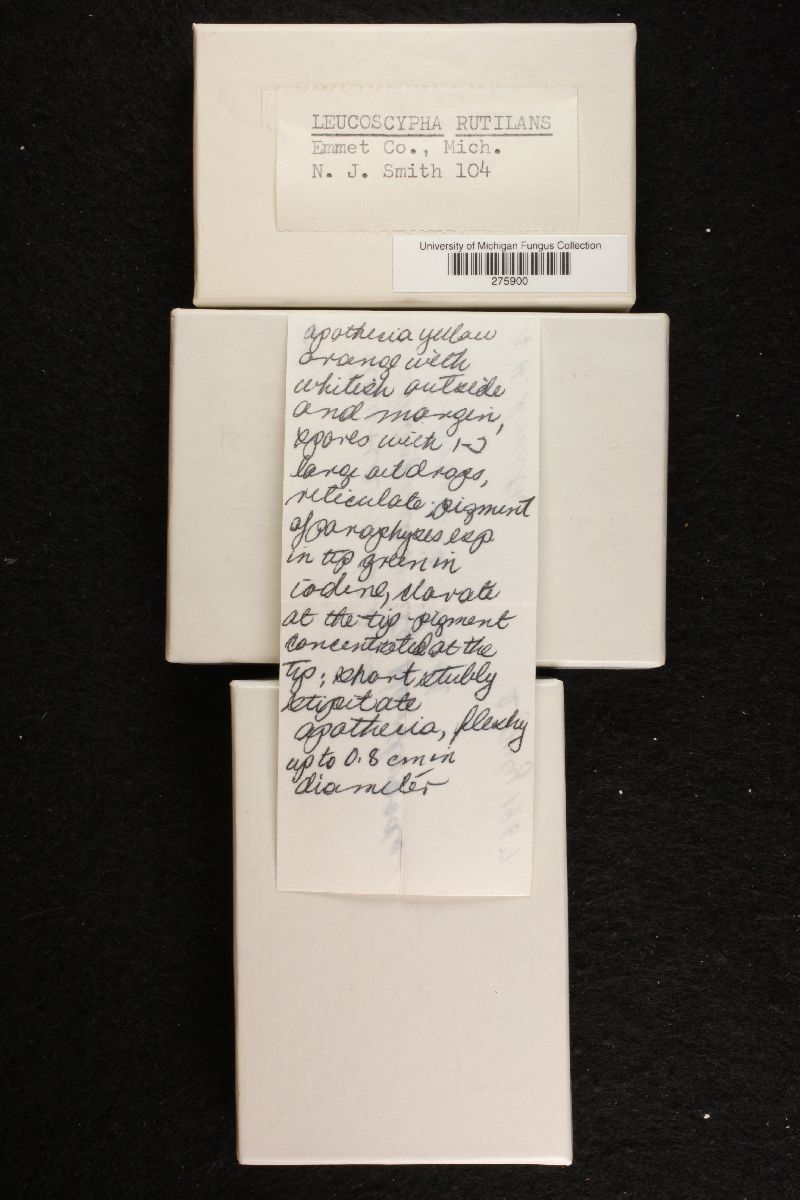 LEUCOSCYPHA RUTILANS
Emmet Co., Mich.
N. J. Smith 104
University of Michigan Fungus Collection
275900
apothecia yellow
orange with
whitish outside
and margin,
spores with 1-2
large oil drops,
reticulate; pigment
of paraphyses esp
in tip green in
iodine, clavate
at the tip pigment
concentrated at the
tip; short stubby
stipitate
apothecia, fleshy
up to 0.8 cm in
diameter